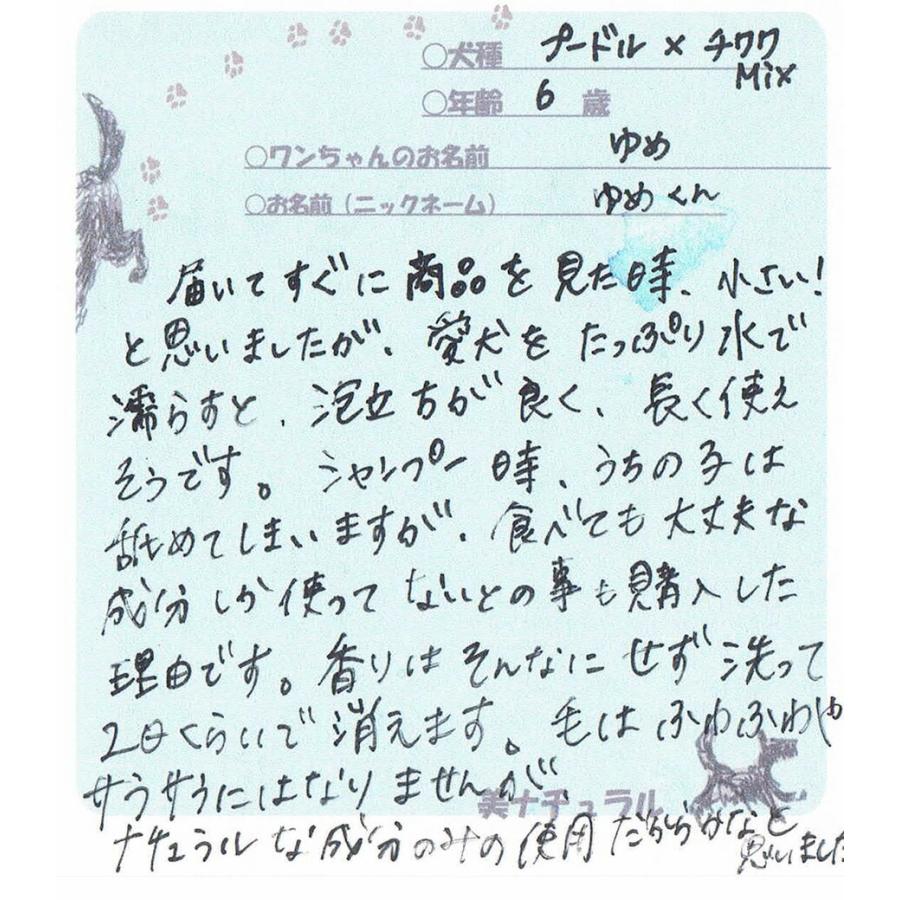 ○犬種 プードル×チワワ
Mix
○年齢 6 歳
○ワンちゃんのお名前 ゆめ
○お名前(ニックネーム) ゆめくん
届いてすぐに商品を見た時、小さい!
と思いましたが、愛犬をたっぷり水で
濡らすと、泡立ちが良く、長く使え
そうです。シャンプー時、うちの子は
舐めてしまいますが、食べても大丈夫な
成分しか使ってないとの事も購入した
理由です。香りはそんなにせず洗って
2日くらいで消えます。毛はふわふわや
サラサラにはなりませんが、
美ナチュラル
ナチュラルな成分のみの使用だからかなと
思いました